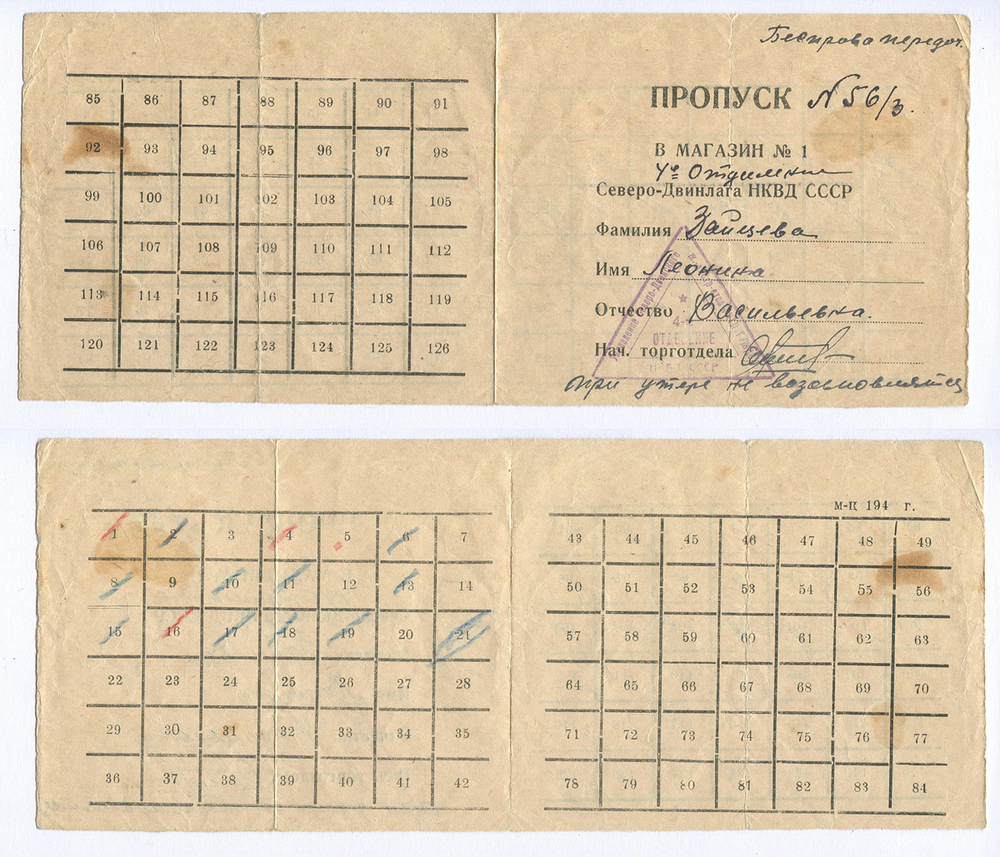 85 86 87 88 89 90 91
92 93 94 95 96 97 98
99 100 101 102 103 104 105
106 107 108 109 110 111 112
113 114 115 116 117 118 119
120 121 122 123 124 125 126
Без права передач.
ПРОПУСК N 56/з.
В МАГАЗИН № 1
4го Отделения
Северо-Двинлага НКВД СССР
Фамилия Зайцева
Имя Леонина.
Отчество Васильевна.
Нач. торготдела
при утере не возобновляется
4-е
ОТДЕЛЕНИЕ
СССР
1 2 3 4 5 6 7
8 9 10 11 12 13 14
15 16 17 18 19 20 21
22 23 24 25 26 27 28
29 30 31 32 33 34 35
36 37 38 39 40 41 42
м-ц 194 г.
43 44 45 46 47 48 49
50 51 52 53 54 55 56
57 58 59 60 61 62 63
64 65 66 67 68 69 70
71 72 73 74 75 76 77
78 79 80 81 82 83 84